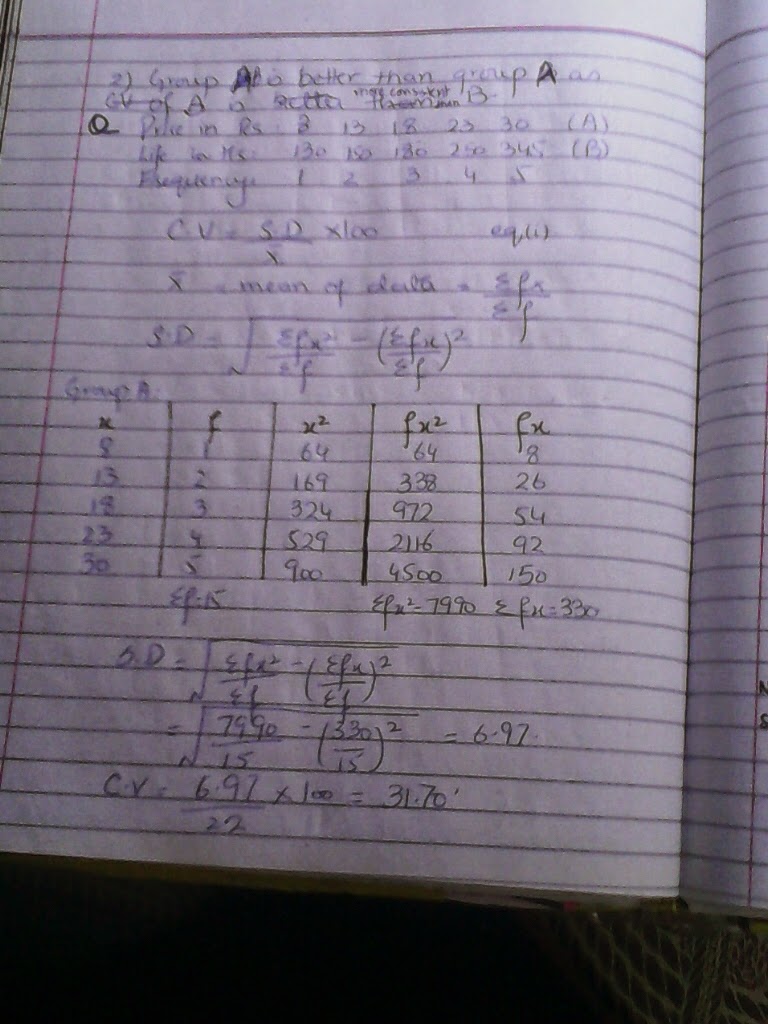 2) Group A is better than group A as
CV of A is more consistent than B.
Q Price in Rs. 8 13 18 23 30 (A)
Life in Hs. 130 150 180 250 345 (B)
Frequency 1 2 3 4 5
CV = SD/x̄ ×100 eq.(1)
x̄ = mean of data = Σfx/Σf
S.D = √(Σfx²/Σf - (Σfx/Σf)²)
Group A
x f x² fx² fx
8 1 64 64 8
13 2 169 338 26
18 3 324 972 54
23 4 529 2116 92
30 5 900 4500 150
Σf=15 Σfx²=7990 Σfx=330
S.D = √(Σfx²/Σf - (Σfx/Σf)²)
= √(7990/15 - (330/15)²) = 6.97.
C.V = 6.97/22 × 100 = 31.70